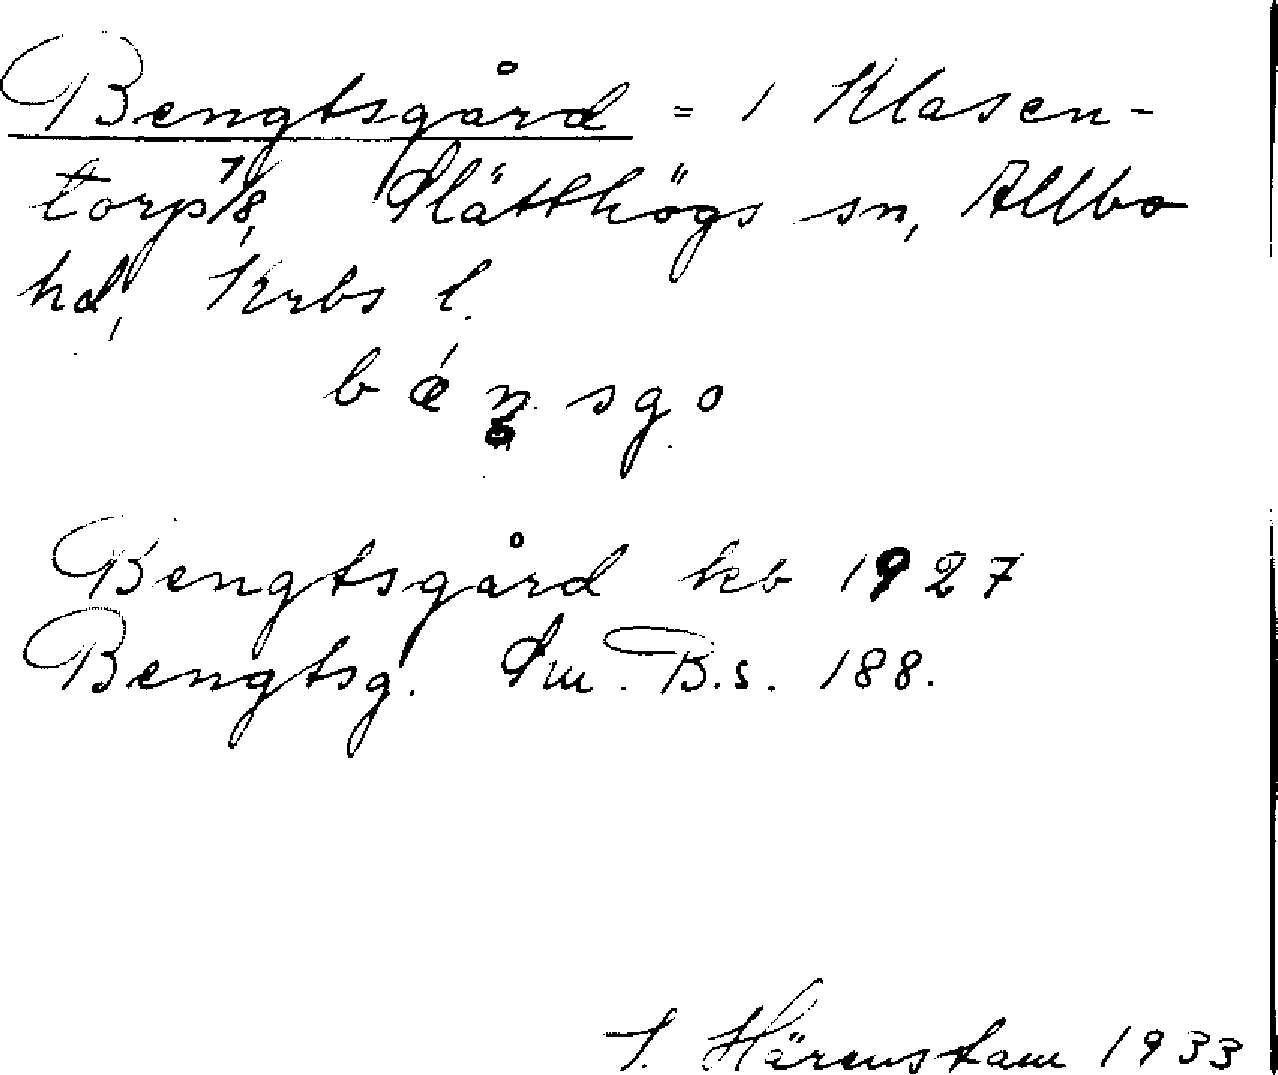 Bengtsgård = 1 Klasen-
torp 7/8, Slätthögs sn, Allbo
hd, Krbs l.
bǽn̥sgo
Bengtsgård kb 1927
Bengtsg. Sm. B.s. 188.
J. Härenstam 1933